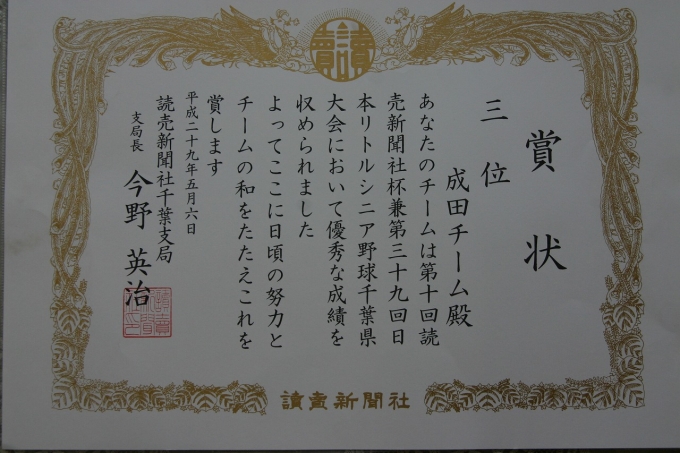 讀賣
賞状
三位
成田チーム殿
あなたのチームは第十回読
売新聞社杯兼第三十九回日
本リトルシニア野球千葉県
大会において優秀な成績を
収められました
よってここに日頃の努力と
チームの和をたたえこれを
賞します
平成二十九年五月六日
読売新聞社千葉支局
支局長 今野英治
讀賣新聞社